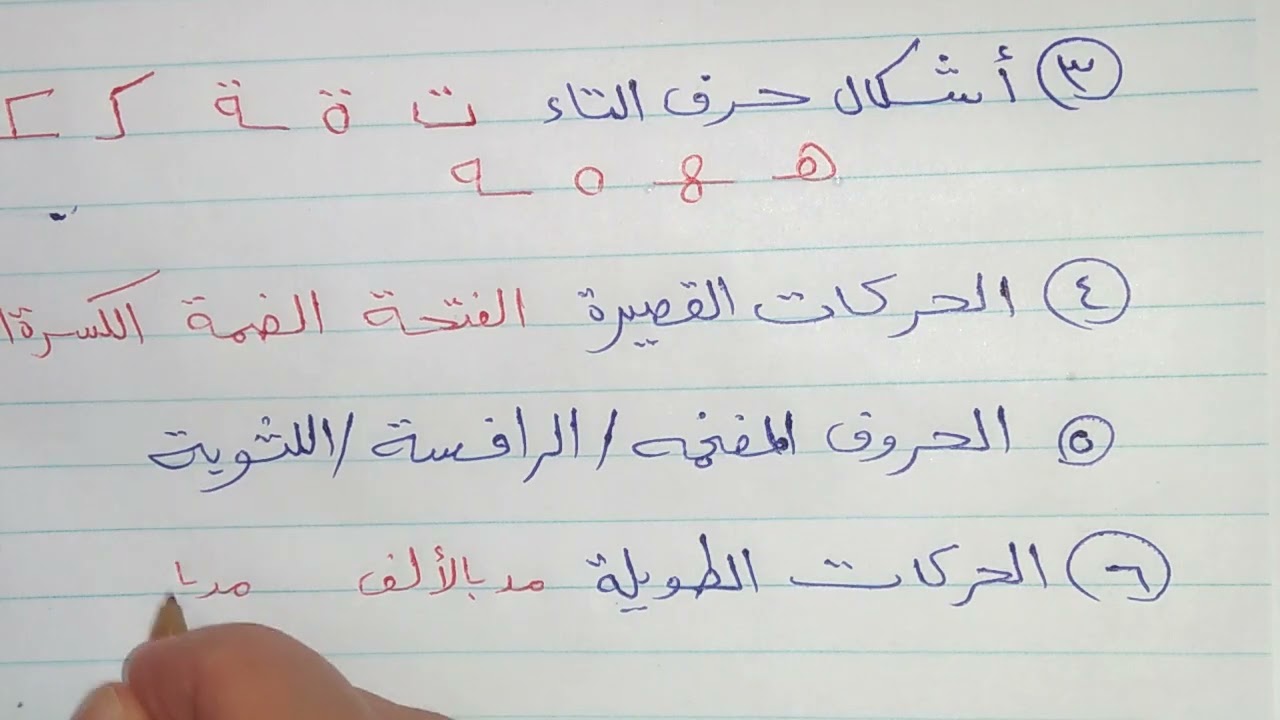 ٣ أشكال حرف التاء ت ة ـة ک ـکـ
هـ ـهـ ه ـه
٤ الحركات القصيرة الفتحة الضمة الكسرة ا
٥ الحروف المفخمه / الرافسة / اللثوية
٦ الحركات الطويلة مد بالألف مد با